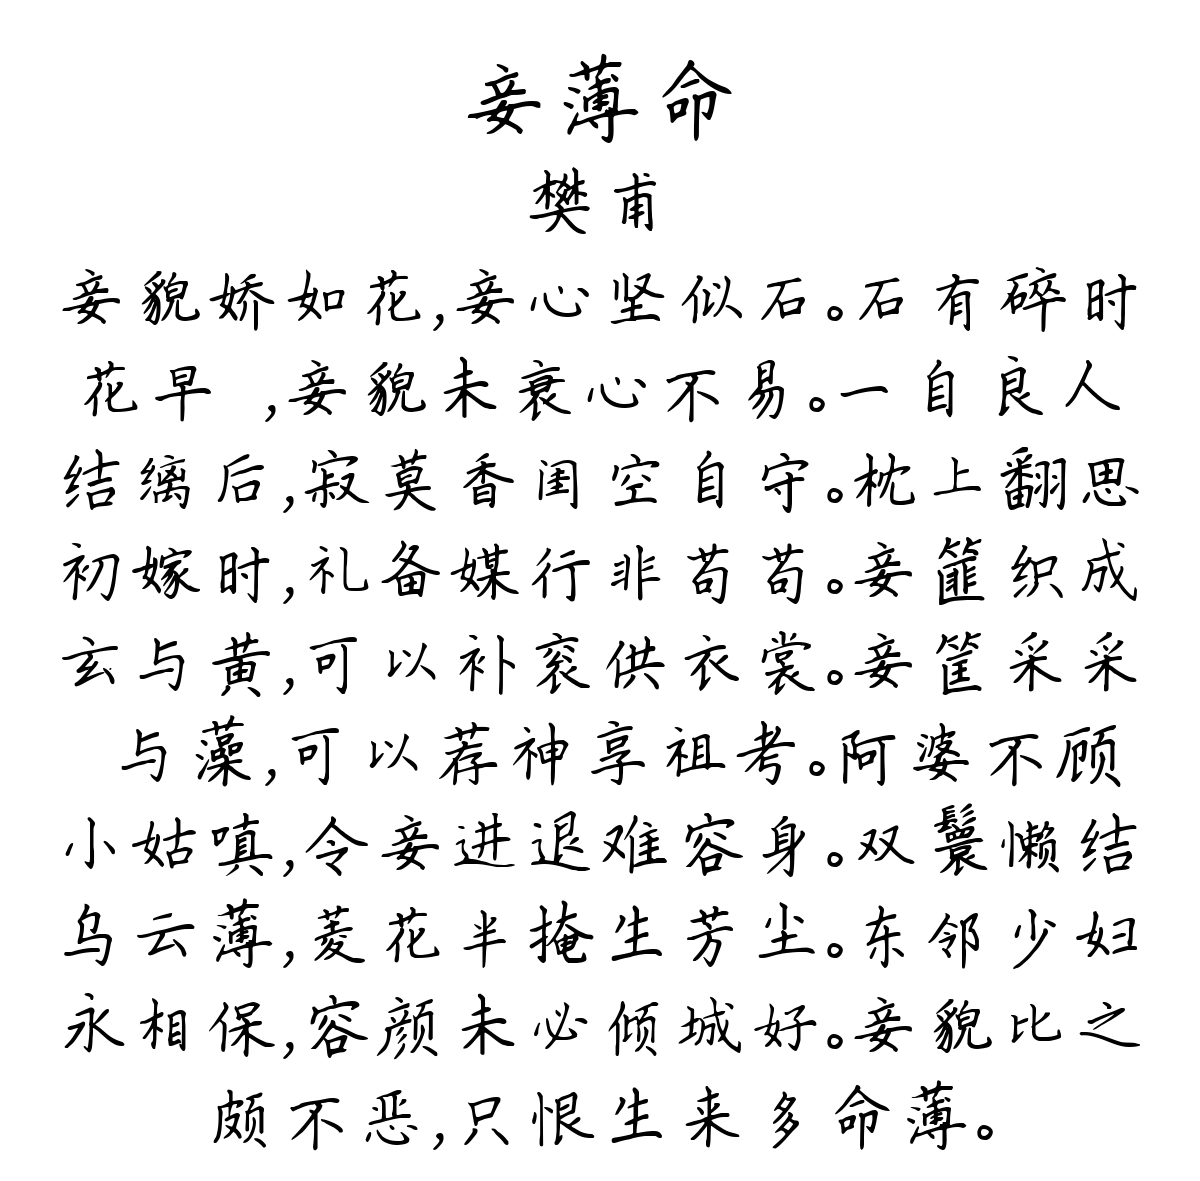 妾薄命
樊甫
妾貌娇如花,妾心坚似石。石有碎时
花早 ,妾貌未衰心不易。一自良人
结缡后,寂莫香闺空自守。枕上翻思
初嫁时,礼备媒行非苟苟。妾篚织成
玄与黄,可以补衮供衣裳。妾筐采采
与藻,可以荐神享祖考。阿婆不顾
小姑嗔,令妾进退难容身。双鬟懒结
乌云薄,菱花半掩生芳尘。东邻少妇
永相保,容颜未必倾城好。妾貌比之
颇不恶,只恨生来多命薄。